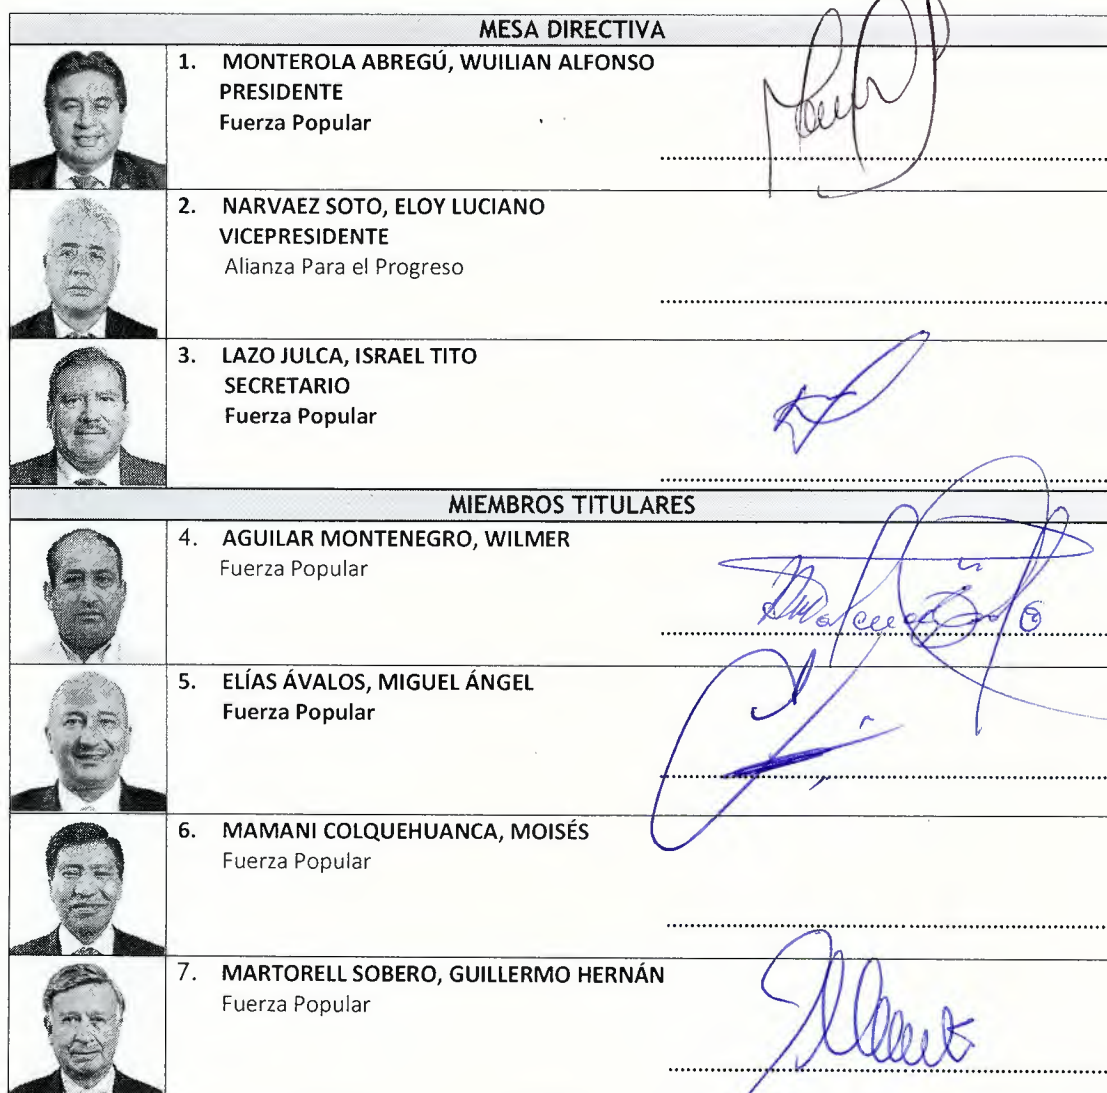 MESA DIRECTIVA
1. MONTEROLA ABREGÚ, WUILIAN ALFONSO
PRESIDENTE
Fuerza Popular
2. NARVAEZ SOTO, ELOY LUCIANO
VICEPRESIDENTE
Alianza Para el Progreso
3. LAZO JULCA, ISRAEL TITO
SECRETARIO
Fuerza Popular
MIEMBROS TITULARES
4. AGUILAR MONTENEGRO, WILMER
Fuerza Popular
5. ELÍAS ÁVALOS, MIGUEL ÁNGEL
Fuerza Popular
6. MAMANI COLQUEHUANCA, MOISÉS
Fuerza Popular
7. MARTORELL SOBERO, GUILLERMO HERNÁN
Fuerza Popular